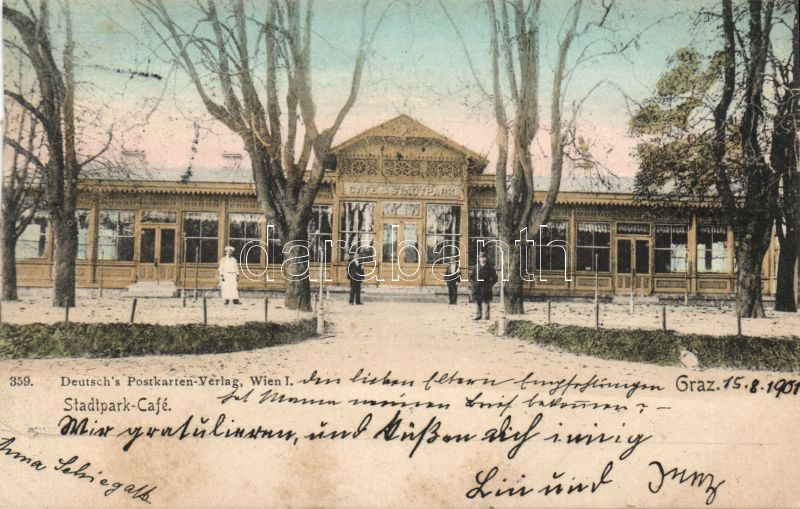 CAFÉ STADTPARK
darabanth
359. Deutsch's Postkarten-Verlag, Wien I. den lieben Eltern Empfehlungen Graz. 15.8.1901
Stadtpark-Café. hat Mama meinen Brief bekommen? –
Wir gratulieren, und küßen dich innig
Anna
Lin und